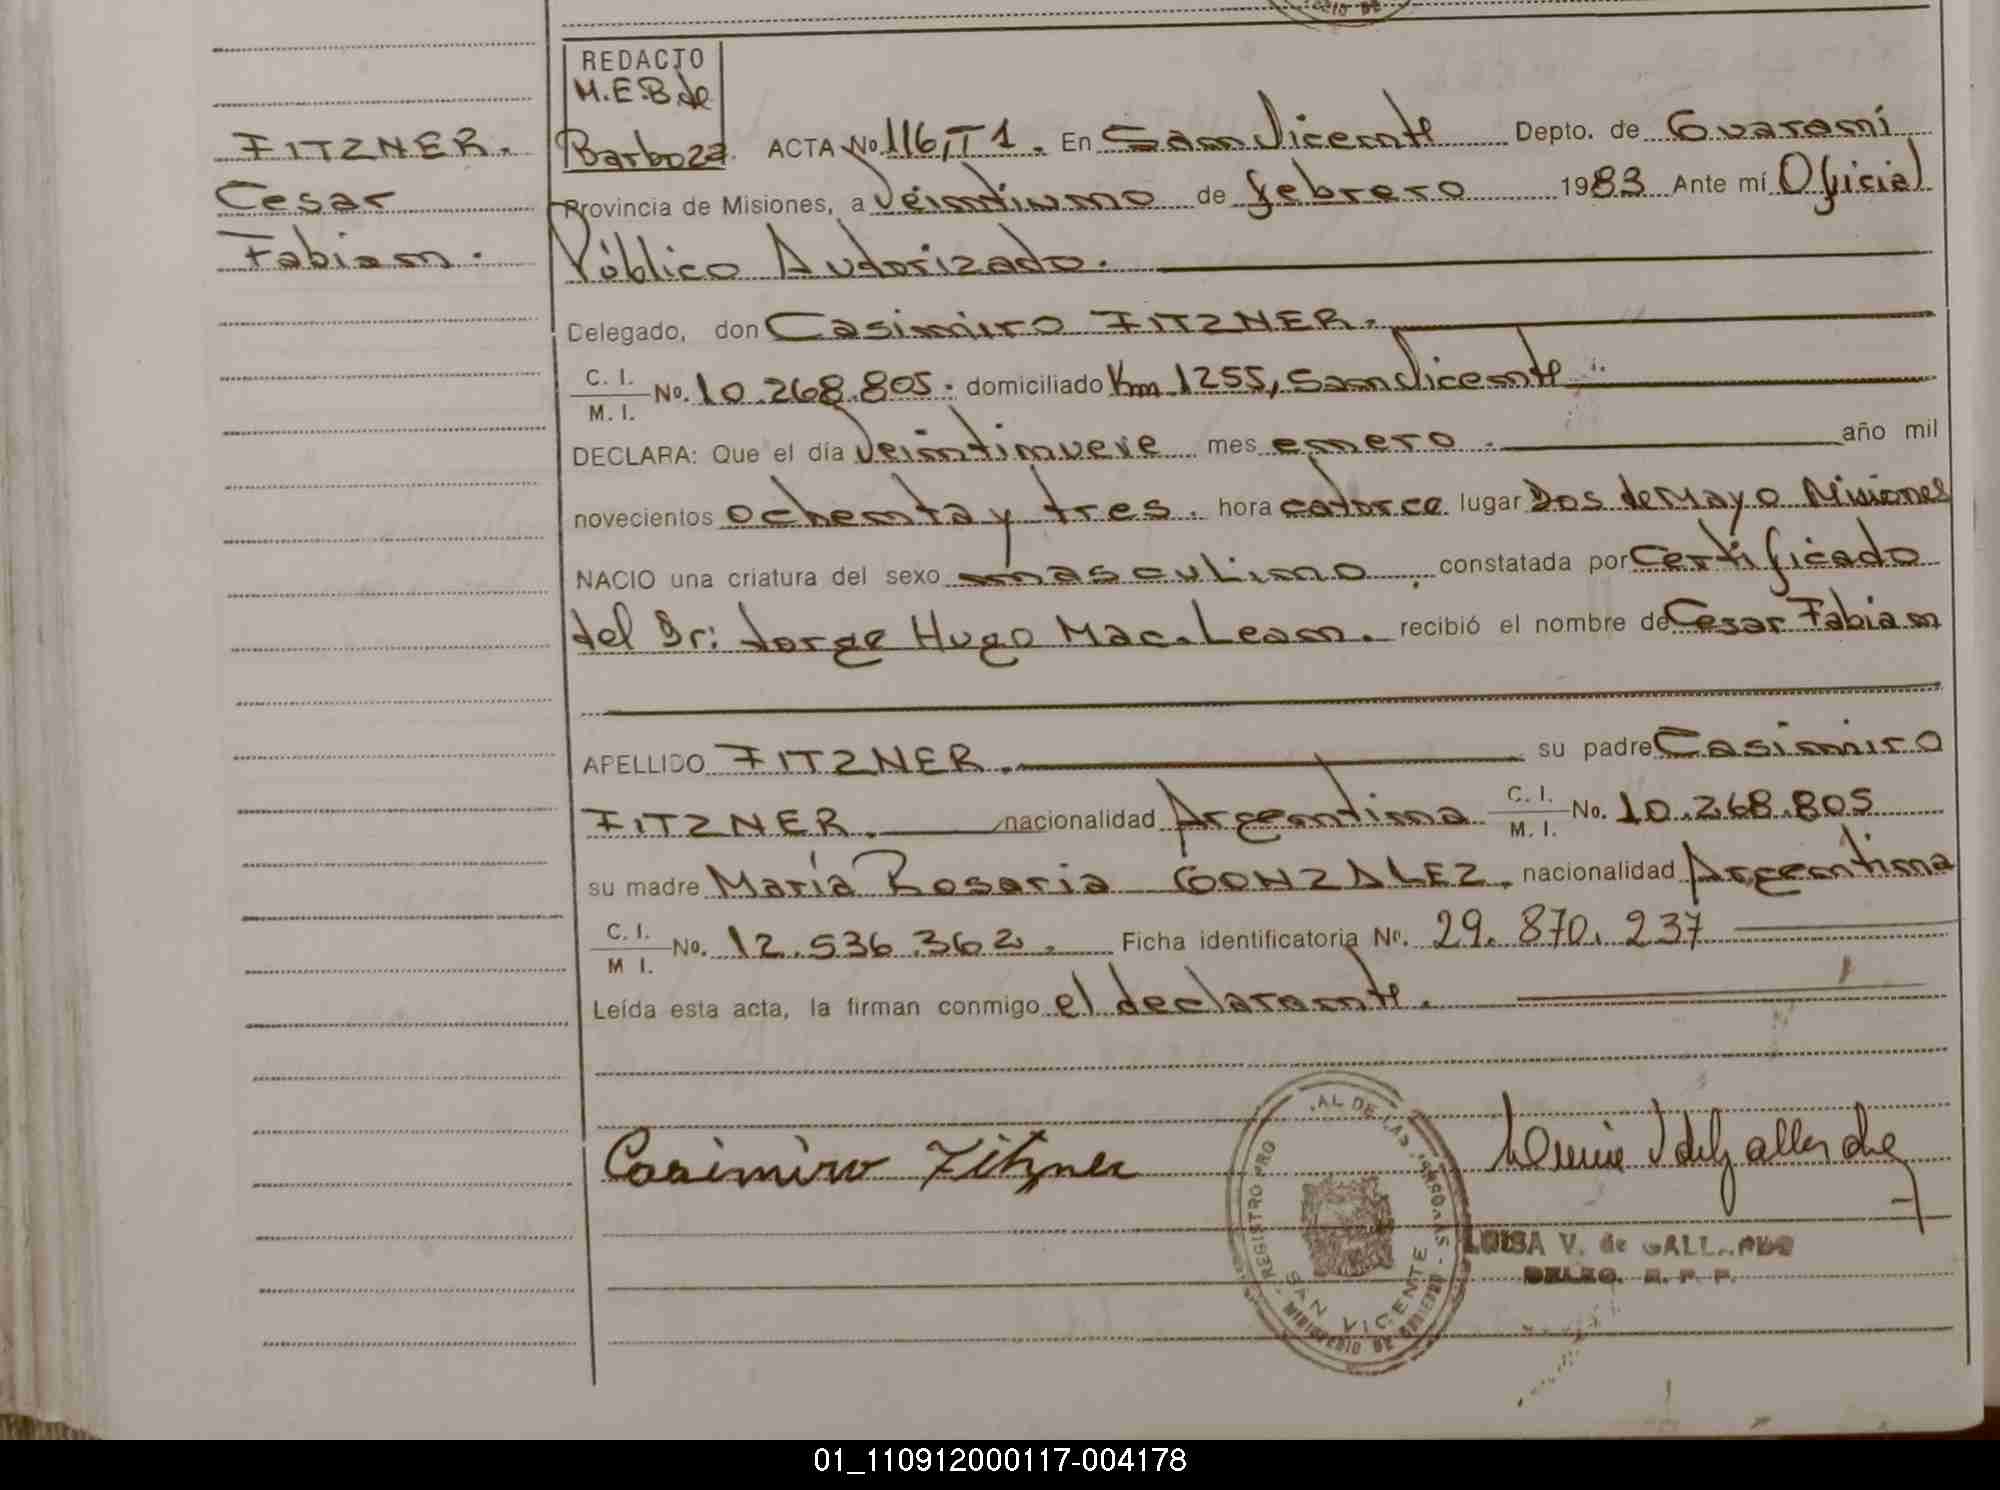 FITZNER.
Cesar
Fabian.
REDACTO
M.E.B. de
Barboza
ACTA No 116, T 1. En San Vicente Depto. de Guaraní
Provincia de Misiones, a veintiuno de febrero 1983 Ante mí Oficial
Público Autorizado.
Delegado, don Casimiro FITZNER.
C. I.
M. I. No. 10.268.805. domiciliado Km 1255, San Vicente.
DECLARA: Que el día veintinueve mes enero. año mil
novecientos ochenta y tres. hora catorce lugar Dos de Mayo Misiones
NACIO una criatura del sexo masculino, constatada por Certificado
del Dr: Jorge Hugo Mac.Lean. recibió el nombre de Cesar Fabian
APELLIDO FITZNER. su padre Casimiro
FITZNER. nacionalidad Argentina C. I. M. I. No. 10.268.805
su madre María Rosaria GONZALEZ. nacionalidad Argentina
C. I.
M I. No. 12.536.362. Ficha identificatoria No. 29.870.237
Leída esta acta, la firman conmigo el declarante.
Casimiro Fitzner
REGISTRO PRO AL DE LAS
SAN VICENTE
MINISTERIO DE GOBIERNO
LUISA V. de GALLARDO
DELEG. R. P. P.
01_110912000117-004178